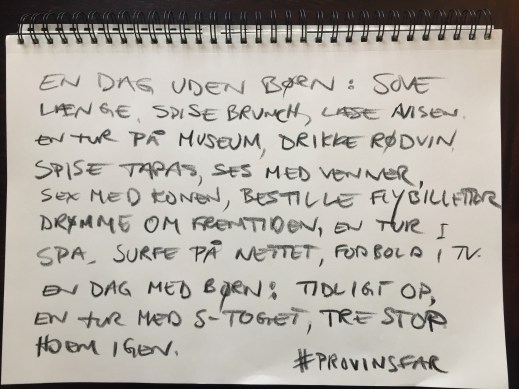 EN DAG UDEN BØRN: SOVE
LÆNGE, SPISE BRUNCH, LÆSE AVISEN.
EN TUR PÅ MUSEUM, DRIKKE RØDVIN,
SPISE TAPAS, SES MED VENNER,
SEX MED KONEN, BESTILLE FLYBILLETTER
DRØMME OM FREMTIDEN, EN TUR I
SPA, SURFE PÅ NETTET, FODBOLD I TV.
EN DAG MED BØRN: TIDLIGT OP,
EN TUR MED S-TOGET, TRE STOP
HJEM IGEN.
#PROVINSFAR